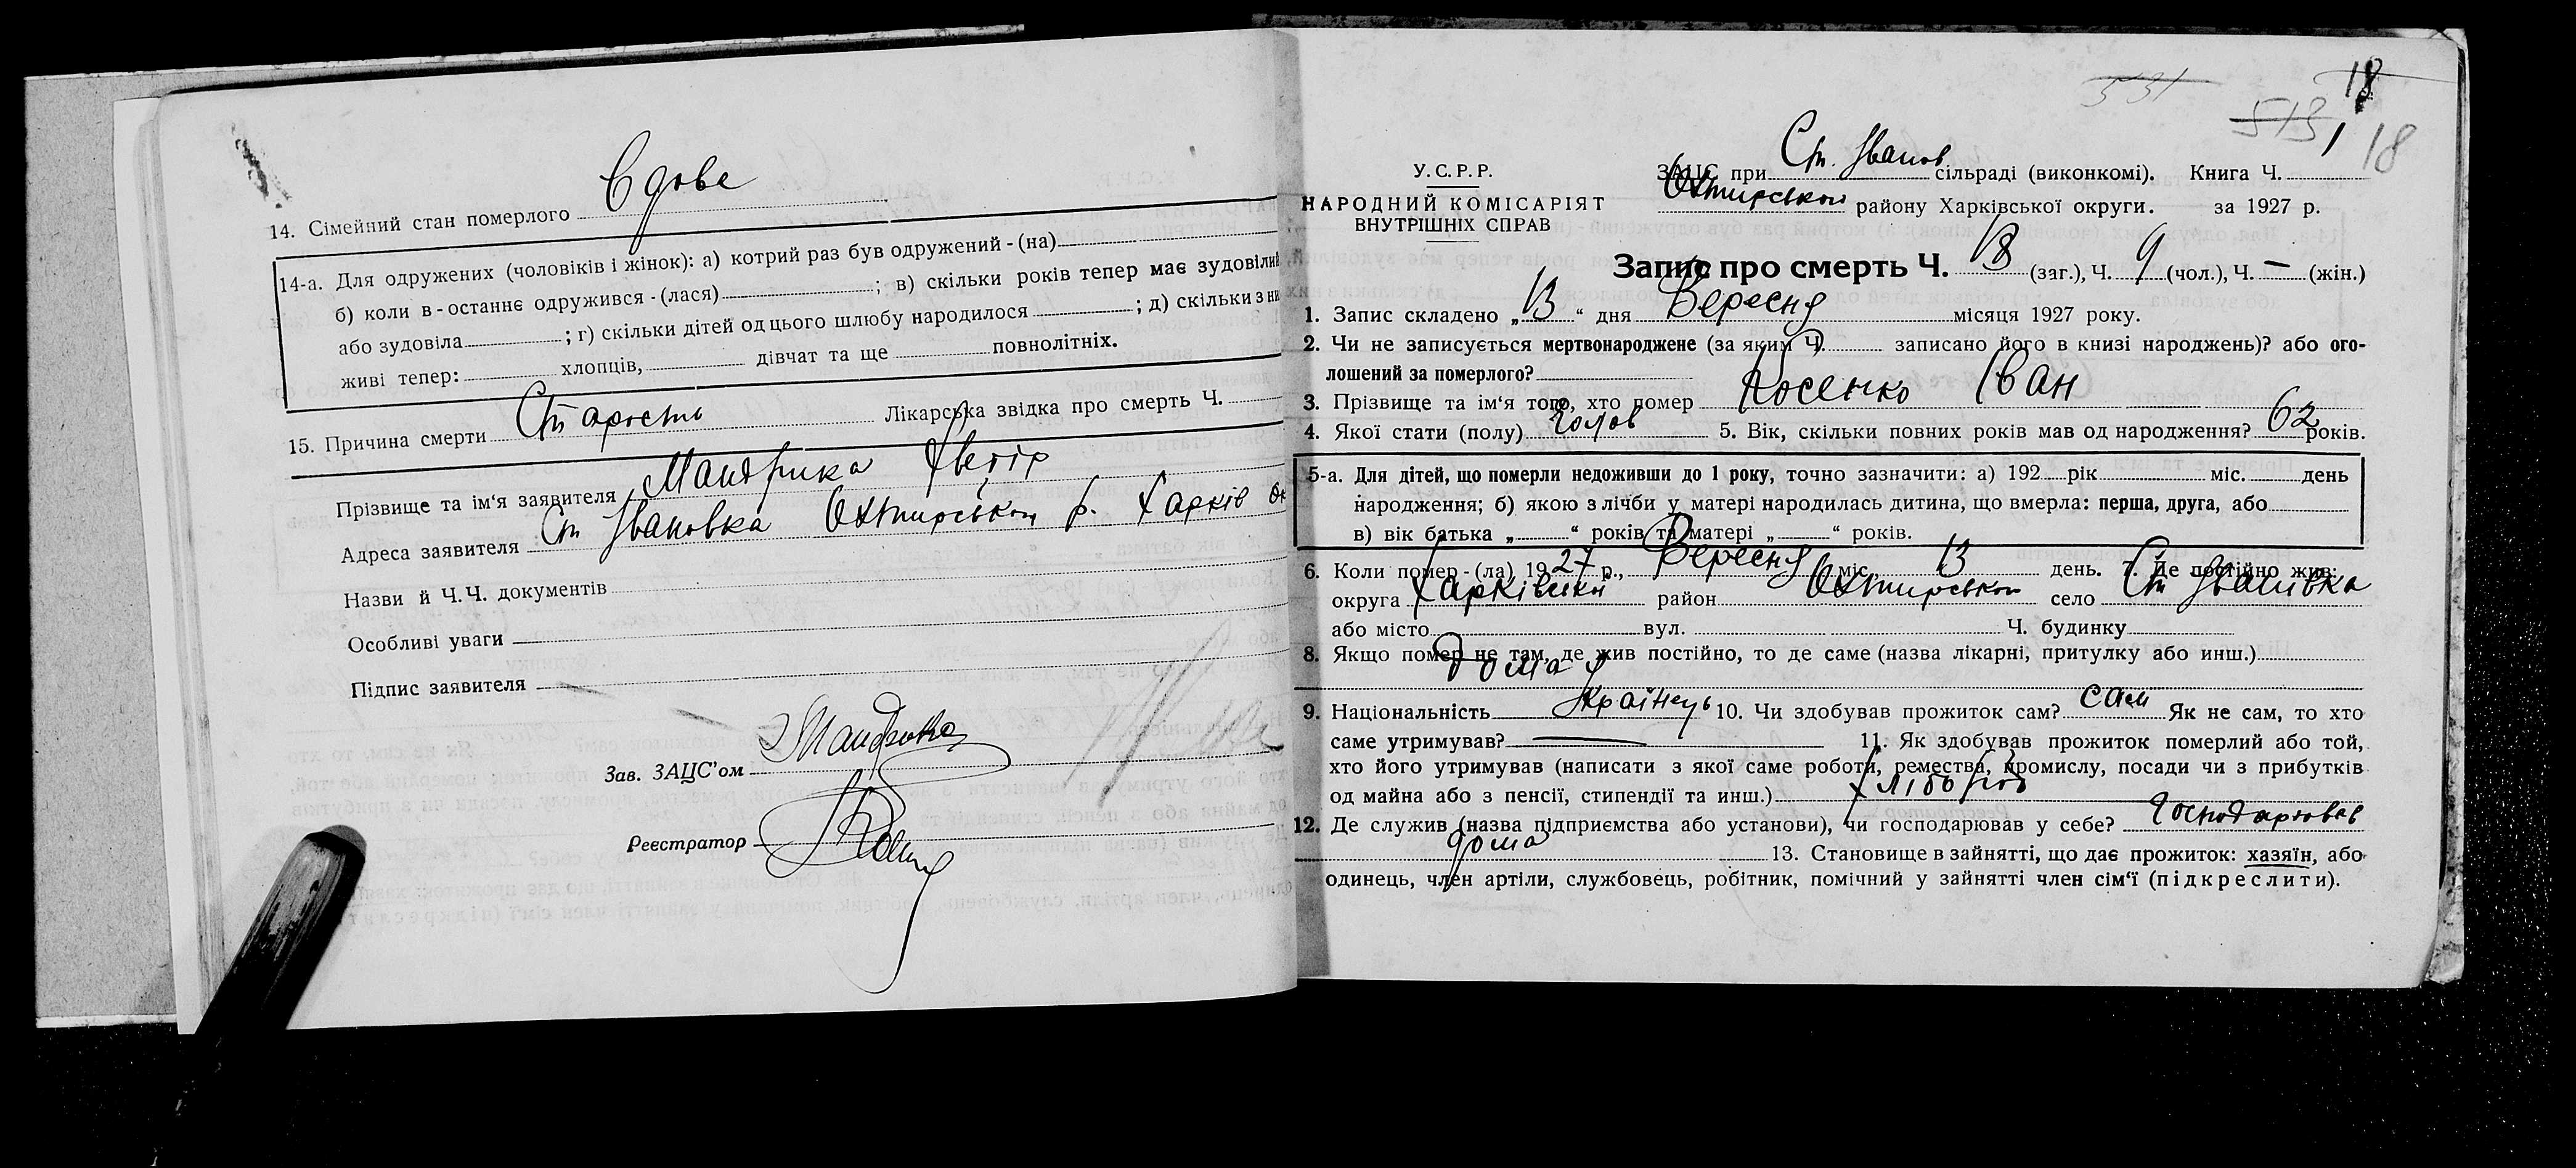 14. Сімейний стан померлого Вдове
14-а. Для одружених (чоловіків і жінок): а) котрий раз був одружений-(на)
б) коли в-останнє одружився-(лася) ; в) скільки років тепер має зудовілий
або зудовіла ; г) скільки дітей од цього шлюбу народилося ; д) скільки з них
живі тепер: хлопців, дівчат та ще повнолітніх.
15. Причина смерти Старость Лікарська звідка про смерть Ч.
Прізвище та ім'я заявителя Мандрика
Адреса заявителя Ст Івановка Охтирськом р. Харків Ок
Назви й Ч.Ч. документів
Особливі уваги
Підпис заявителя
Зав. ЗАЦС'ом
Реєстратор
531
18
513
18
У.С.Р.Р.
НАРОДНИЙ КОМІСАРІЯТ
ВНУТРІШНІХ СПРАВ
ЗАЦС при Ст. Іванов сільраді (виконкомі). Книга Ч. 1
Охтирськом району Харківської округи. за 1927 р.
Запис про смерть Ч. 18 (заг.), Ч. 9 (чол.), Ч. — (жін.)
1. Запис складено „13“ дня Вересня місяця 1927 року.
2. Чи не записується мертвонароджене (за яким Ч. записано його в книзі народжень)? або ого-
лошений за померлого?
3. Прізвище та ім'я того, хто помер Косенко Іван
4. Якої стати (полу) Чолов 5. Вік, скільки повних років мав од народження? 62 років.
5-а. Для дітей, що померли недоживши до 1 року, точно зазначити: а) 192 рік міс. день
народження; б) якою з лічби у матері народилась дитина, що вмерла: перша, друга, або
в) вік батька „ “ років та матері „ “ років.
6. Коли помер-(ла) 1927 р., Вересня міс. 13 день. 7. Де постійно жив:
округа Харківській район Охтирськом село Ст Іванівка
або місто вул. Ч. будинку
8. Якщо помер не там, де жив постійно, то де саме (назва лікарні, притулку або инш.)
Дома
9. Національність Українець 10. Чи здобував прожиток сам? сам Як не сам, то хто
саме утримував? — 11. Як здобував прожиток померлий або той,
хто його утримував (написати з якої саме роботи, ремества, промислу, посади чи з прибутків
од майна або з пенсії, стипендії та инш.) Хлібороб
12. Де служив (назва підприємства або установи), чи господарював у себе? Господарював
дома 13. Становище в зайнятті, що дає прожиток: хазяїн, або
одинець, член артіли, службовець, робітник, помічний у зайнятті член сім'ї (підкреслити).